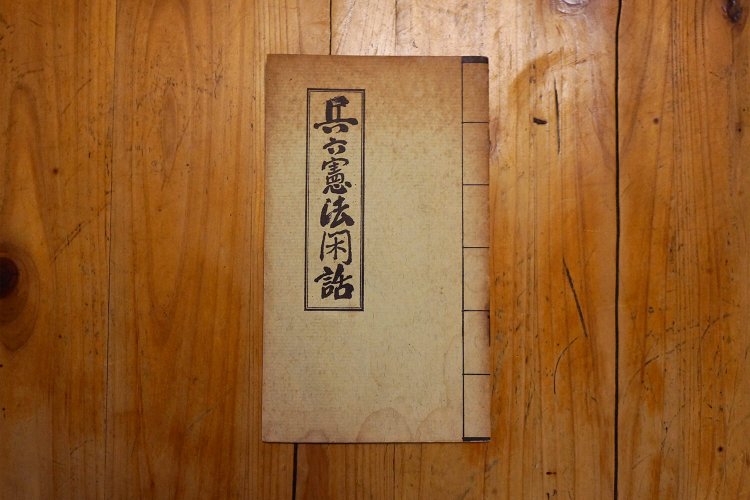 兵六憲法閑話